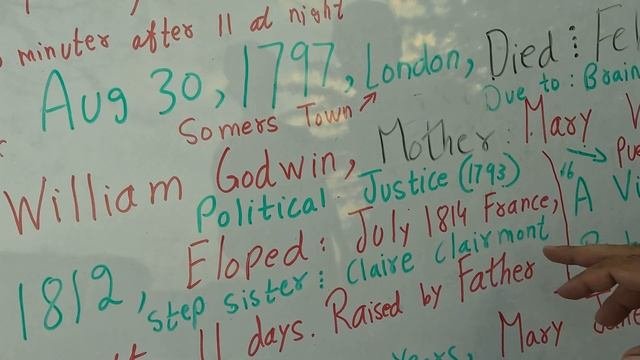 minuter after 11 at night
Aug 30, 1797, London, Died : Fe
Somers Town ↗ Due to : Brain
William Godwin, Mother : Mary
Political Justice (1793)
Eloped : July 1814 France, A Vi
1812, step sister : Claire Clairmont
11 days. Raised by Father
Years, Mary